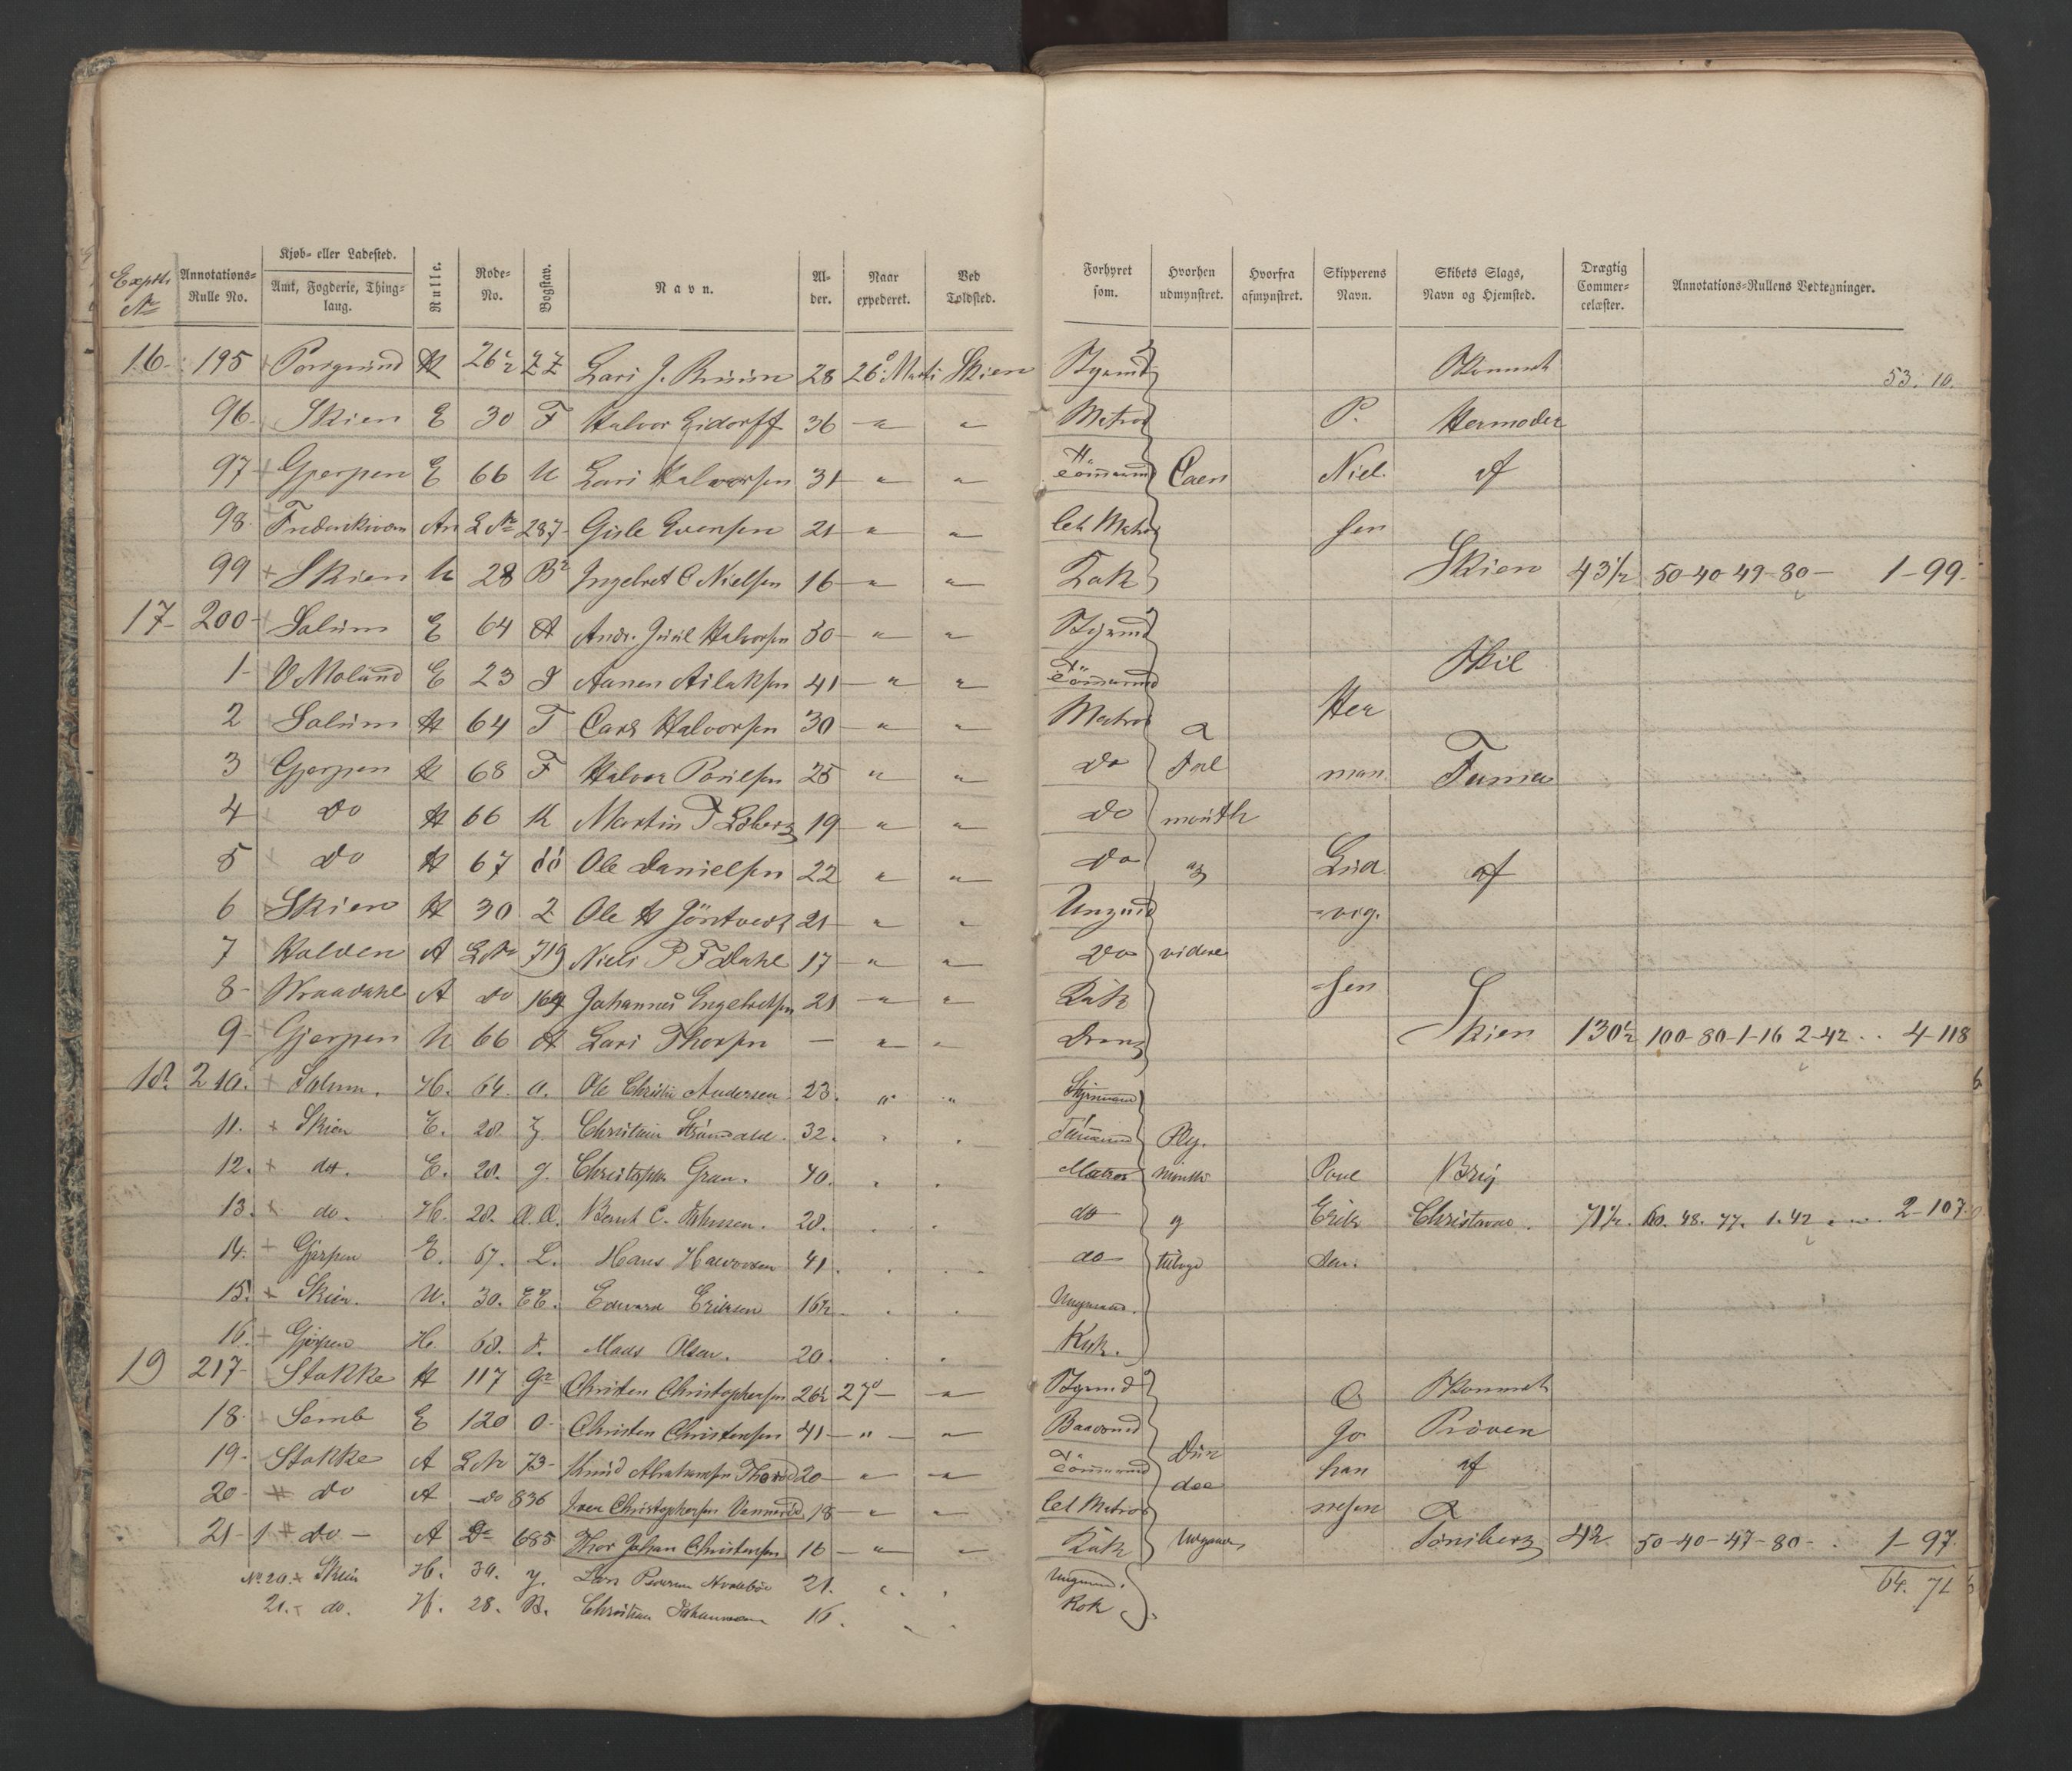 Expth. No | Annotations-Rulle No. | Kjøb- eller Ladested. Amt, Fogderie, Thinglaug. | Rulle. | Rode-No. | Bogstav. | Navn. | Alder. | Naar expederet. | Ved Toldsted. | Forhyret som. | Hvorhen udmynstret. | Hvorfra afmynstret. | Skipperens Navn. | Skibets Slags, Navn og Hjemsted. | Drægtig Commercelæster. | Annotations-Rullens Vedtegninger.
16- 195 + Porsgrund H 26½ ZZ Lars J. 28 26 Marti Skien Styrmd 53. 10.
96 Skien E 30 F Halvor Eidorff 36 — " — " Matros P. Hermoder
97 + Gjerpen E 66 U Lars Halvorsen 31 — " — " Tömmermd Caen Niel- af
98 Frederiksværn An L No 287 Gisle Evensen 21 — " — " Let Matros sen
99 + Skien U 28 B2 Ingebret C Nielsen 16 — " — " Kok Skien 43½ 50-40-49-80- 1-99.
17- 200- Solum E 64 A Andr. Juul Halvorsen 30 — " — " Styrmd
1- V Moland E 23 J Aanen Aslaksen 41 — " — " Tömmermd
2 Solum H 64 T Carl Halvorsen 30 — " — " Matros a Her
3 Gjerpen H 68 F Halvor Poulsen 25 — " — " do Fal man Fama
4 do H 66 K Martin T 19 — " — " do mouth
5 do H 67 dd Ole Danielsen 22 " — " do og Lud af
6 Skien H 30 Z Ole H 21 — " " Ungmd -vig.
7 Halden A L No 719 Niels P F Dahl 17 — " — " do videre
8- Wraadahl A do 169 Johannes Engebretsen 21 — " — " Kok -sen
9- Gjerpen U 66 A Lars Thorsen — " — " Dreng Skien 130½ 100-80-1-16 2-42 .. 4-118
18. 210. + Solum. H. 64. a. Ole Christn Andersen 23. " " Styrmand
11. + Skien E. 28. Z. Christian 32. . . Tömmermd Ply.
12. + do. E. 28. g. Christopher Gran. 40. . . Matros mouth Poul Brig
13. + do. H. 28. A.A. Bernt C. Johnsen. 28. . . do og Erik Christiane. 71½. 60. 48. 77. 1.42 . .. 2-107.
14. + Gjerpen E. 67. L. Hans Halvorsen 41. . . do tilbage sen.
15. + Skien. U. 30. EE. Edvard Eriksen 16½. . . Ungmand.
16. + Gjerpen H. 68. Mads Olsen. 20. . . Kok.
19 217- Stokke H 117 G2 Christen Christophersen 26½ 27d — " Styrmd O Skonnert
18- Semb E 120 O- Christen Christensen 41 — " — " Baadsmd Jo Pröven
19- Stokke A L No 73- Knud Abrahamsen 20 — " — " Tömmermd Dun han af
20- do A do 836 Iver Christophersen 18 — " — " Let Matros dee nesen
21- 1 do — A Do 685 Thor Johan Christensen 16 — " — " Kok Tönsberg 42 50-40-47-80- . 1-97.
No 20. + Skien H. 30. y. Lars 21. " . Ungmd. 64. 71
21. + do. H. 28. B. Christian Johannesen 16. " . Kok